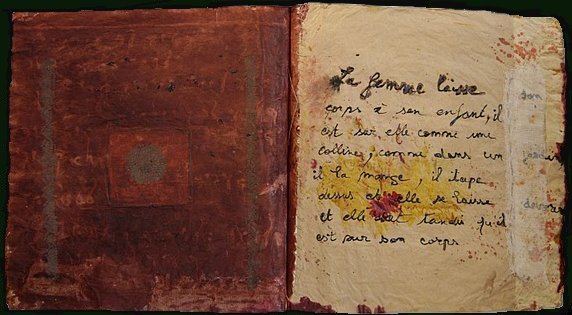 La femme laisse son
corps à son enfant, il
est sur elle comme une
colline, comme dans un jardin
il la mange, il tape
dessus et elle se laisse dévorer
et elle vit tandis qu'il
est sur son corps